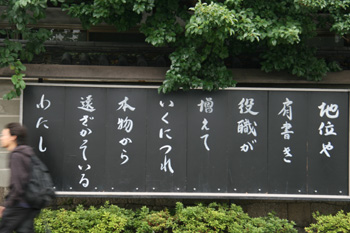 地位や
肩書き
役職が
増えて
いくにつれ
本物から
遠ざかっている
わたし